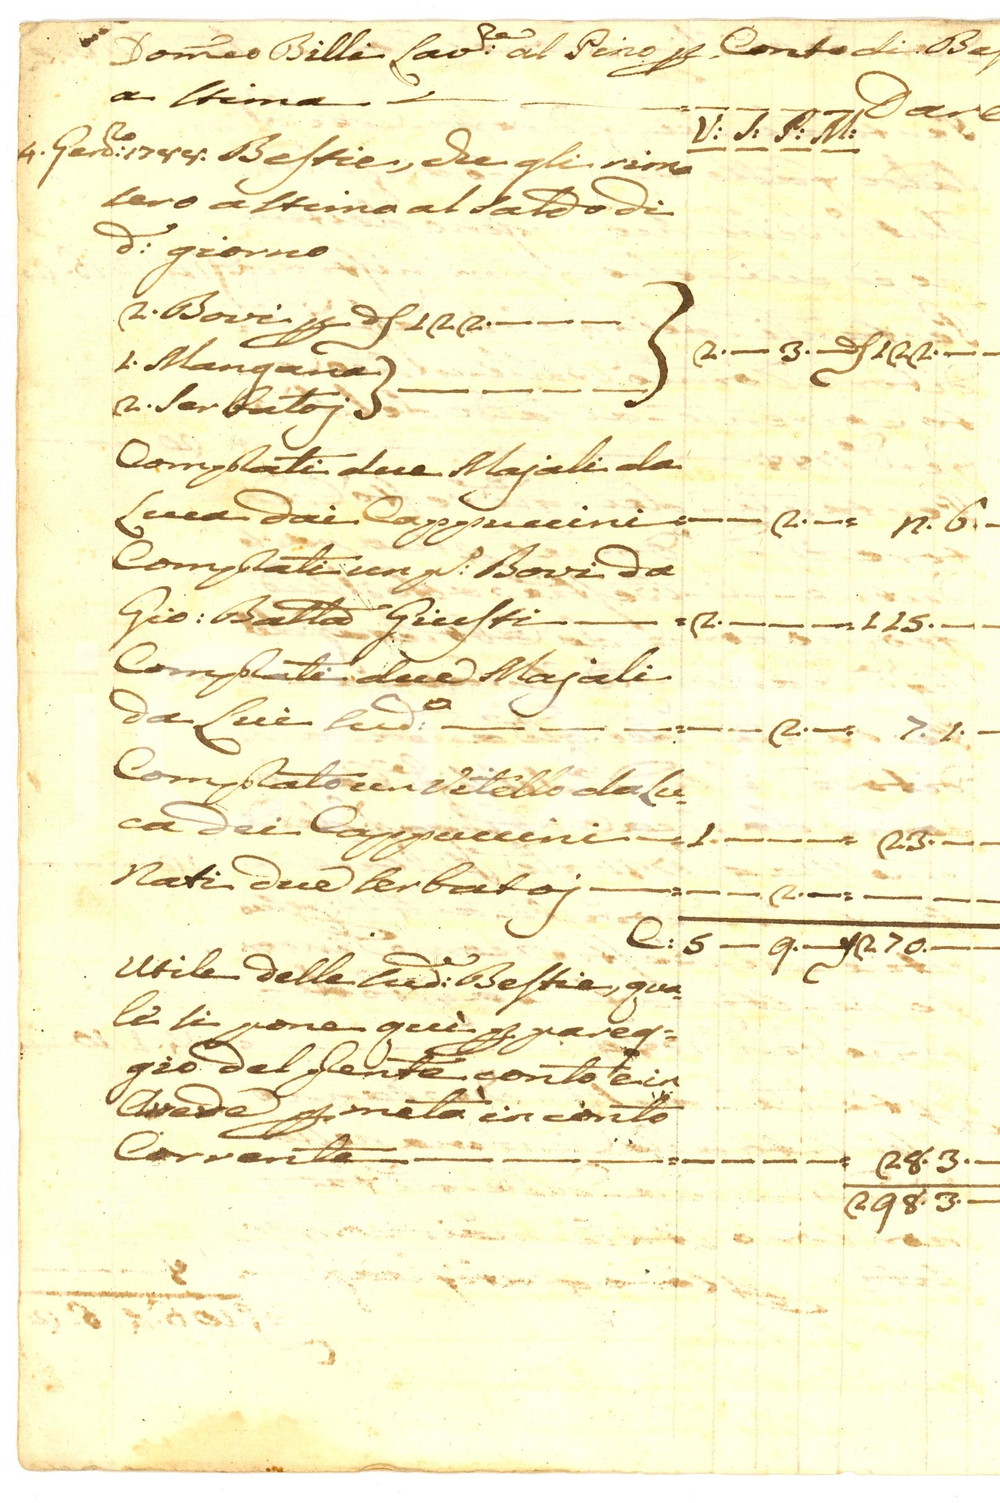 Dom:eo Billi Lav:re al Pino p. Conto di Be
a stima — — — — Dare
V: S: P: M:
4. Gen:ro 1788. Bestie, che gli rima
sero a stima al saldo di
d: giorno
2. Bovi p. df 122. — — —
1. Mangana } — — — } 2. — 3. — df 122. — —
2. Serbatoj
Comprati due Majali da
Luca dai Cappuccini = — 2. — = 12. 6. —
Comprati un p: Bovi da
Gio: Batta Giusti — — = 2. — — = 115. — —
Comprati due Majali
da Lui sud:o — — — = — 2. — = 7. 1. —
Comprato un Vitello da Lu=
ca dei Cappuccini — 1. — — = 23. — —
Nati due serbatoj — = — 2. — = — —
C: 5 — 9. — f 270. — —
Utile delle sud:e Bestie, qua
le si pone qui p. pareg=
gio del p:sente conto e in
Avere p. metà in conto
Corrente — — — = — — = 28. 3. —
298. 3. —